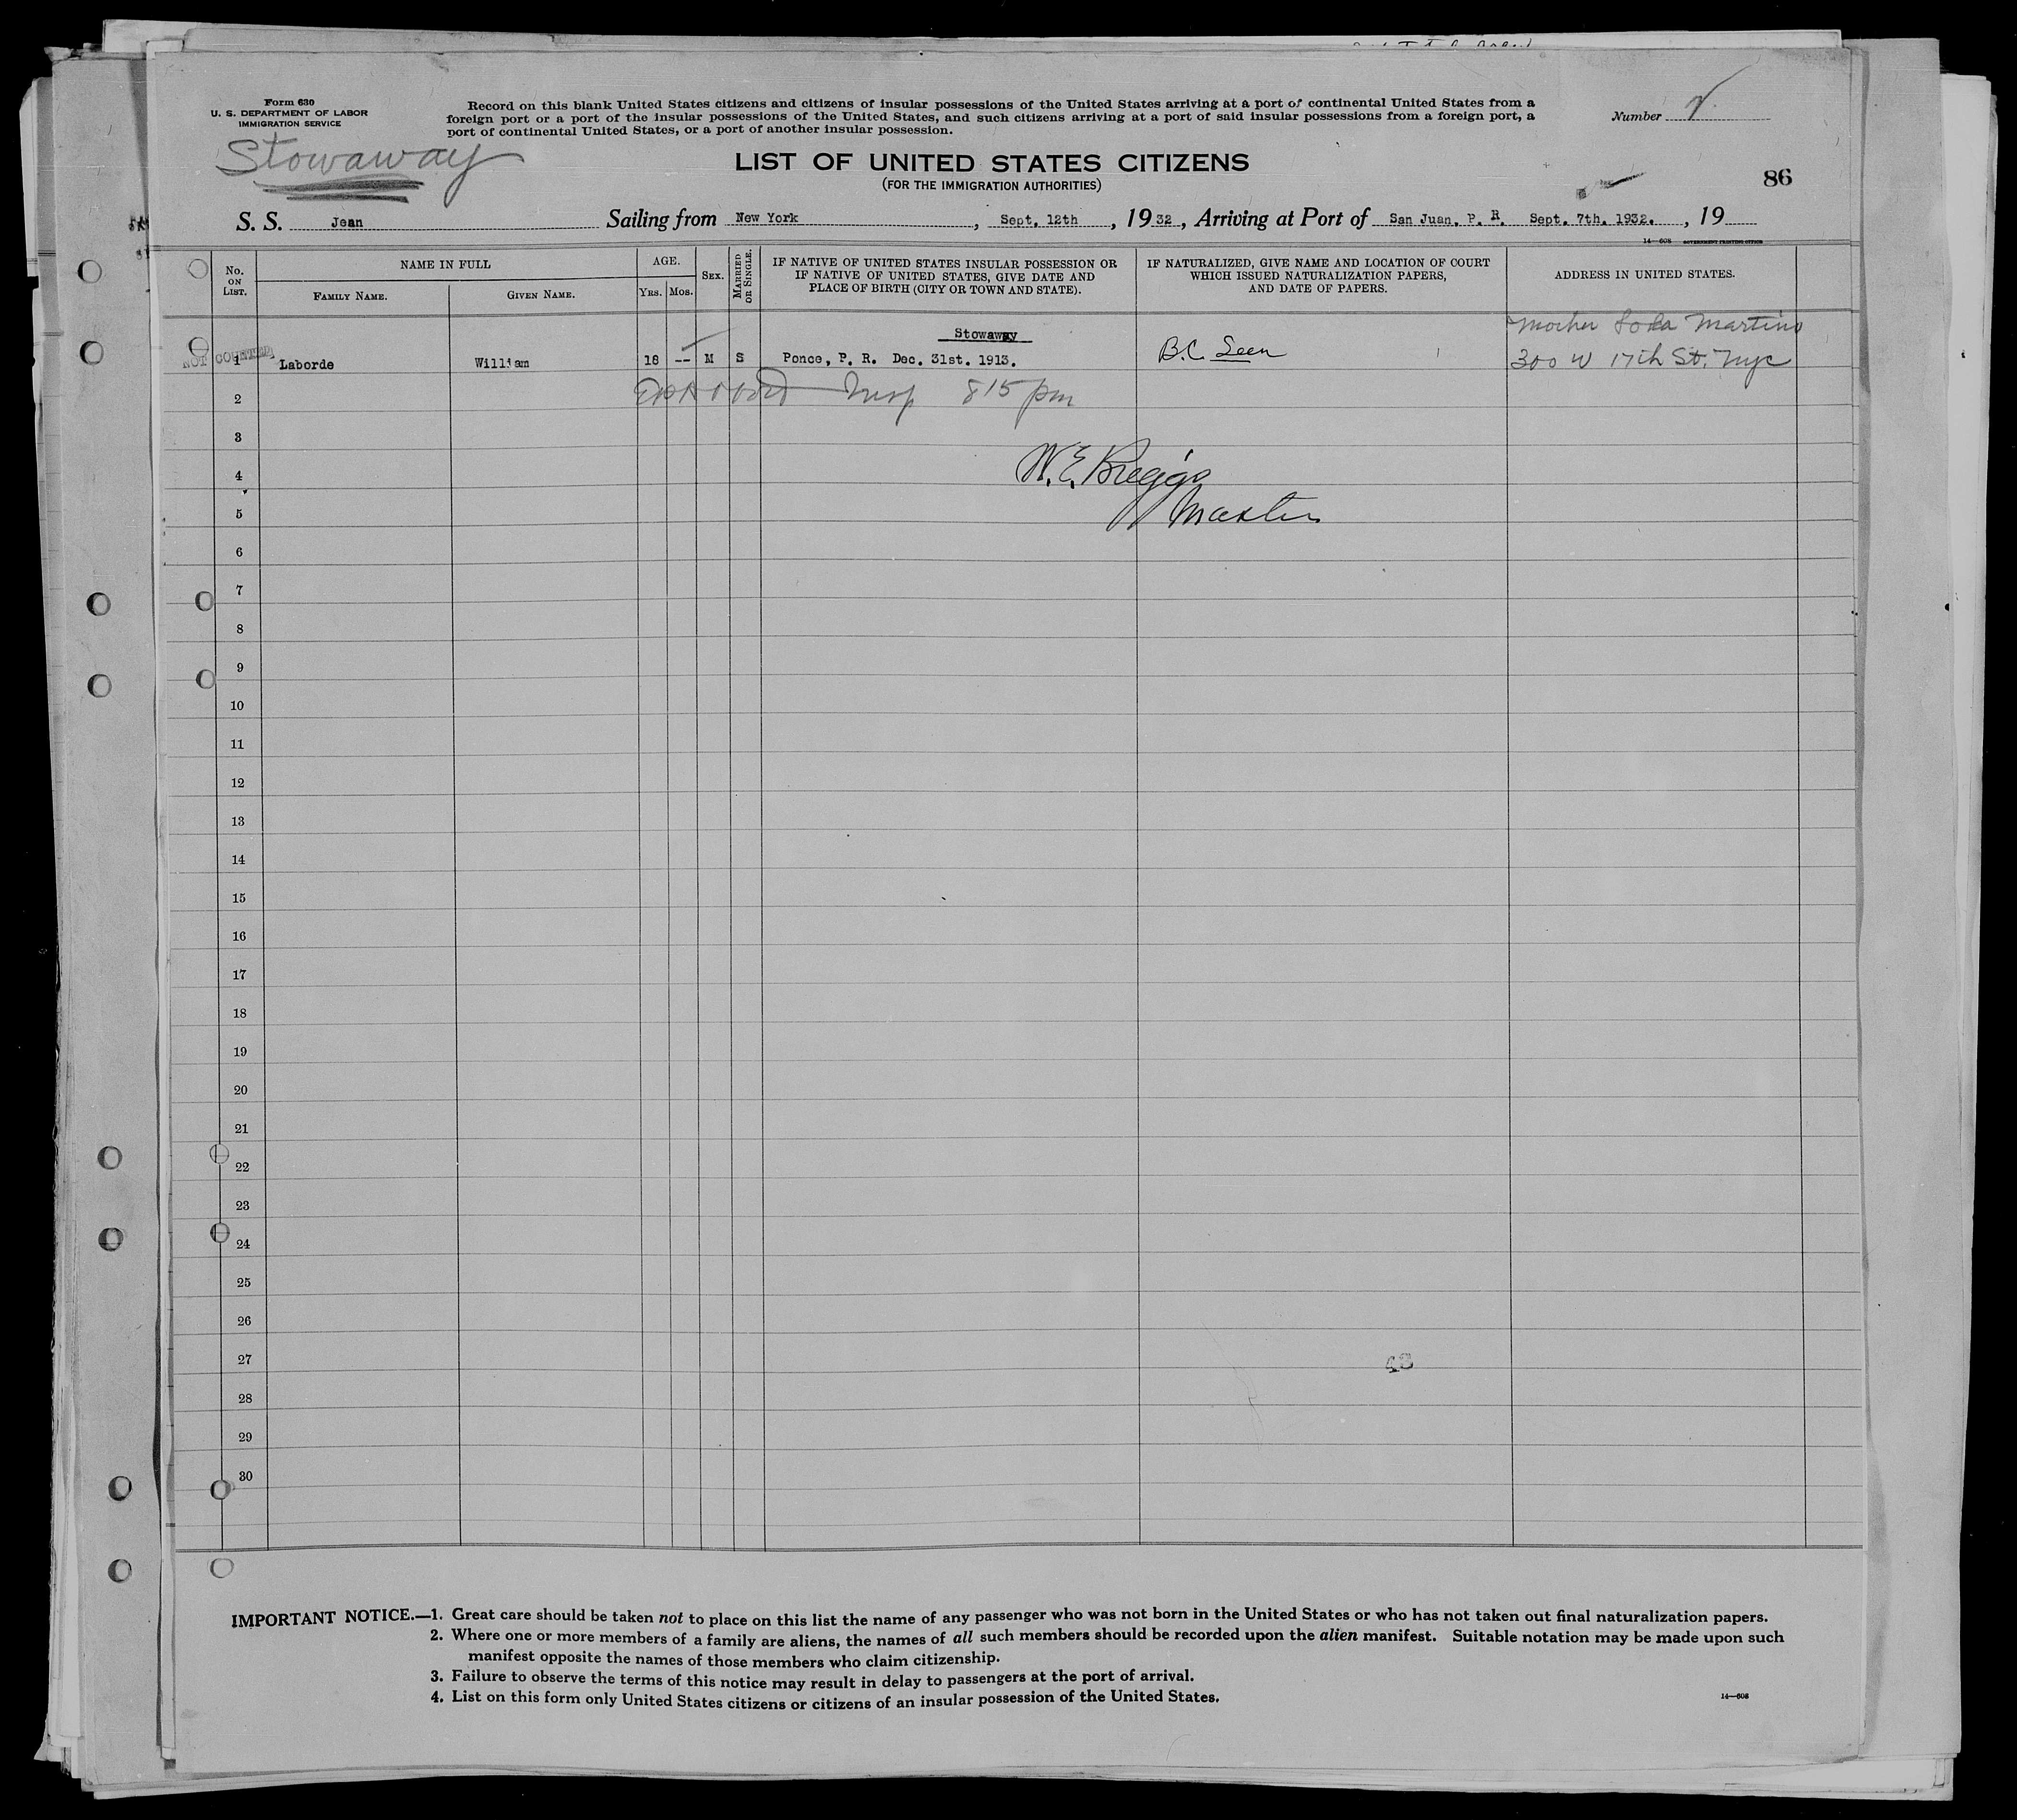 Form 630
U. S. DEPARTMENT OF LABOR
IMMIGRATION SERVICE
Stowaway
Record on this blank United States citizens and citizens of insular possessions of the United States arriving at a port of continental United States from a
foreign port or a port of the insular possessions of the United States, and such citizens arriving at a port of said insular possessions from a foreign port, a
port of continental United States, or a port of another insular possession.
Number
LIST OF UNITED STATES CITIZENS
(FOR THE IMMIGRATION AUTHORITIES)
86
S. S. Jean Sailing from New York, Sept. 12th, 1932, Arriving at Port of San Juan, P. R. Sept. 7th. 1932., 19
14—608 GOVERNMENT PRINTING OFFICE
No. ON LIST.
NAME IN FULL
FAMILY NAME.
GIVEN NAME.
AGE.
YRS.
MOS.
SEX.
MARRIED OR SINGLE.
IF NATIVE OF UNITED STATES INSULAR POSSESSION OR
IF NATIVE OF UNITED STATES, GIVE DATE AND
PLACE OF BIRTH (CITY OR TOWN AND STATE).
IF NATURALIZED, GIVE NAME AND LOCATION OF COURT
WHICH ISSUED NATURALIZATION PAPERS,
AND DATE OF PAPERS.
ADDRESS IN UNITED STATES.
Stowaway
Mother Martino
NOT COUNTED
1 Laborde William 18 -- M S Ponce, P. R. Dec. 31st. 1913. B.C. Seen 300 W 17th St. Nyc
2 815 pm
3
4 W. E. Briggs
5 Master
6
7
8
9
10
11
12
13
14
15
16
17
18
19
20
21
22
23
24
25
26
27
28
29
30
IMPORTANT NOTICE.—1. Great care should be taken not to place on this list the name of any passenger who was not born in the United States or who has not taken out final naturalization papers.
2. Where one or more members of a family are aliens, the names of all such members should be recorded upon the alien manifest. Suitable notation may be made upon such
manifest opposite the names of those members who claim citizenship.
3. Failure to observe the terms of this notice may result in delay to passengers at the port of arrival.
4. List on this form only United States citizens or citizens of an insular possession of the United States.
14—608